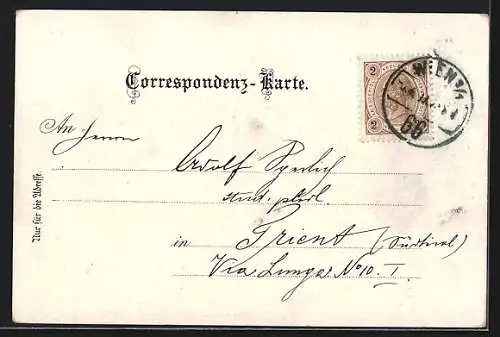 Correspondenz-Karte.
2 2
WIEN
66
An Herrn
Adolf Sperlich
stud. phil.
in Trient (Südtirol)
Via Lunga No 10. I.
Nur für die Adresse.